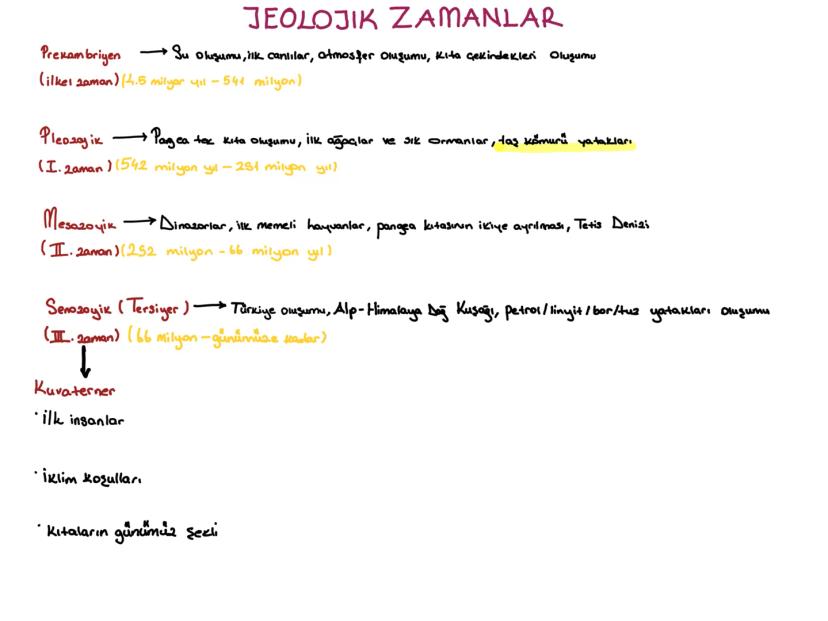 JEOLOJIK ZAMANLAR
Prekambriyen → Su oluşumu, ilk canlılar, atmosfer oluşumu, kıta çekirdekleri oluşumu
(ilkel zaman) (4.5 milyar yıl - 541 milyon)
Pleozoyik → Pagea tek kıta oluşumu, ilk ağaçlar ve sık ormanlar, taş kömürü yatakları
(I. zaman) (542 milyon yıl - 251 milyon yıl)
Mesozoyik → Dinazorlar, ilk memeli hayvanlar, pangea kıtasının ikiye ayrılması, Tetis Denizi
(II. zaman) (252 milyon - 66 milyon yıl)
Senozoyik (Tersiyer) → Türkiye oluşumu, Alp-Himalaya Dağ Kuşağı, petrol/linyit/bor/tuz yatakları oluşumu
(III. zaman) (66 Milyon - günümüze kadar)
Kuvaterner
· İlk insanlar
· İklim koşulları
· Kıtaların günümüz şekli